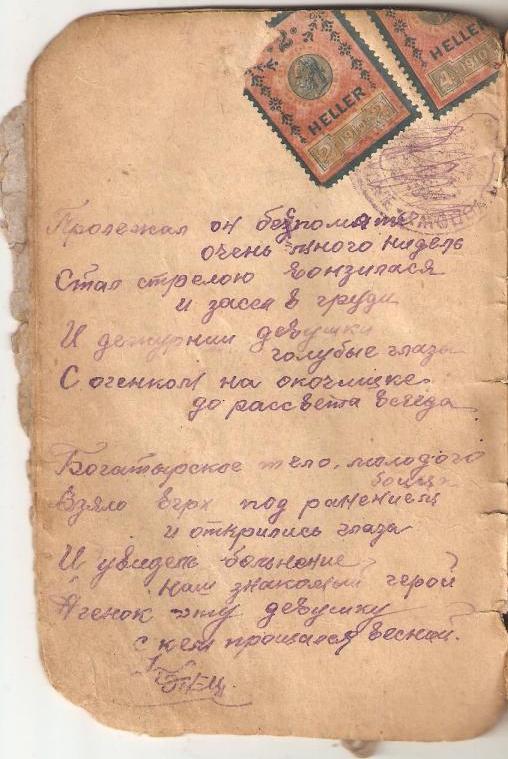 2 HELLER
HELLER
4 1910
Пролежал он без помяти
очень много нидель
Стал стрелою вонзилася
и засела в груди
И дежурнии девушки
голубые глаза
С огенком на окочишке
до рассвета всегда
Богатырское тело, молодого
бойца
Взяло верх под ранением
и открились глаза
И увидель больнение
наш знакомый герой
Агенок эту девушку
с кем прощался весной.